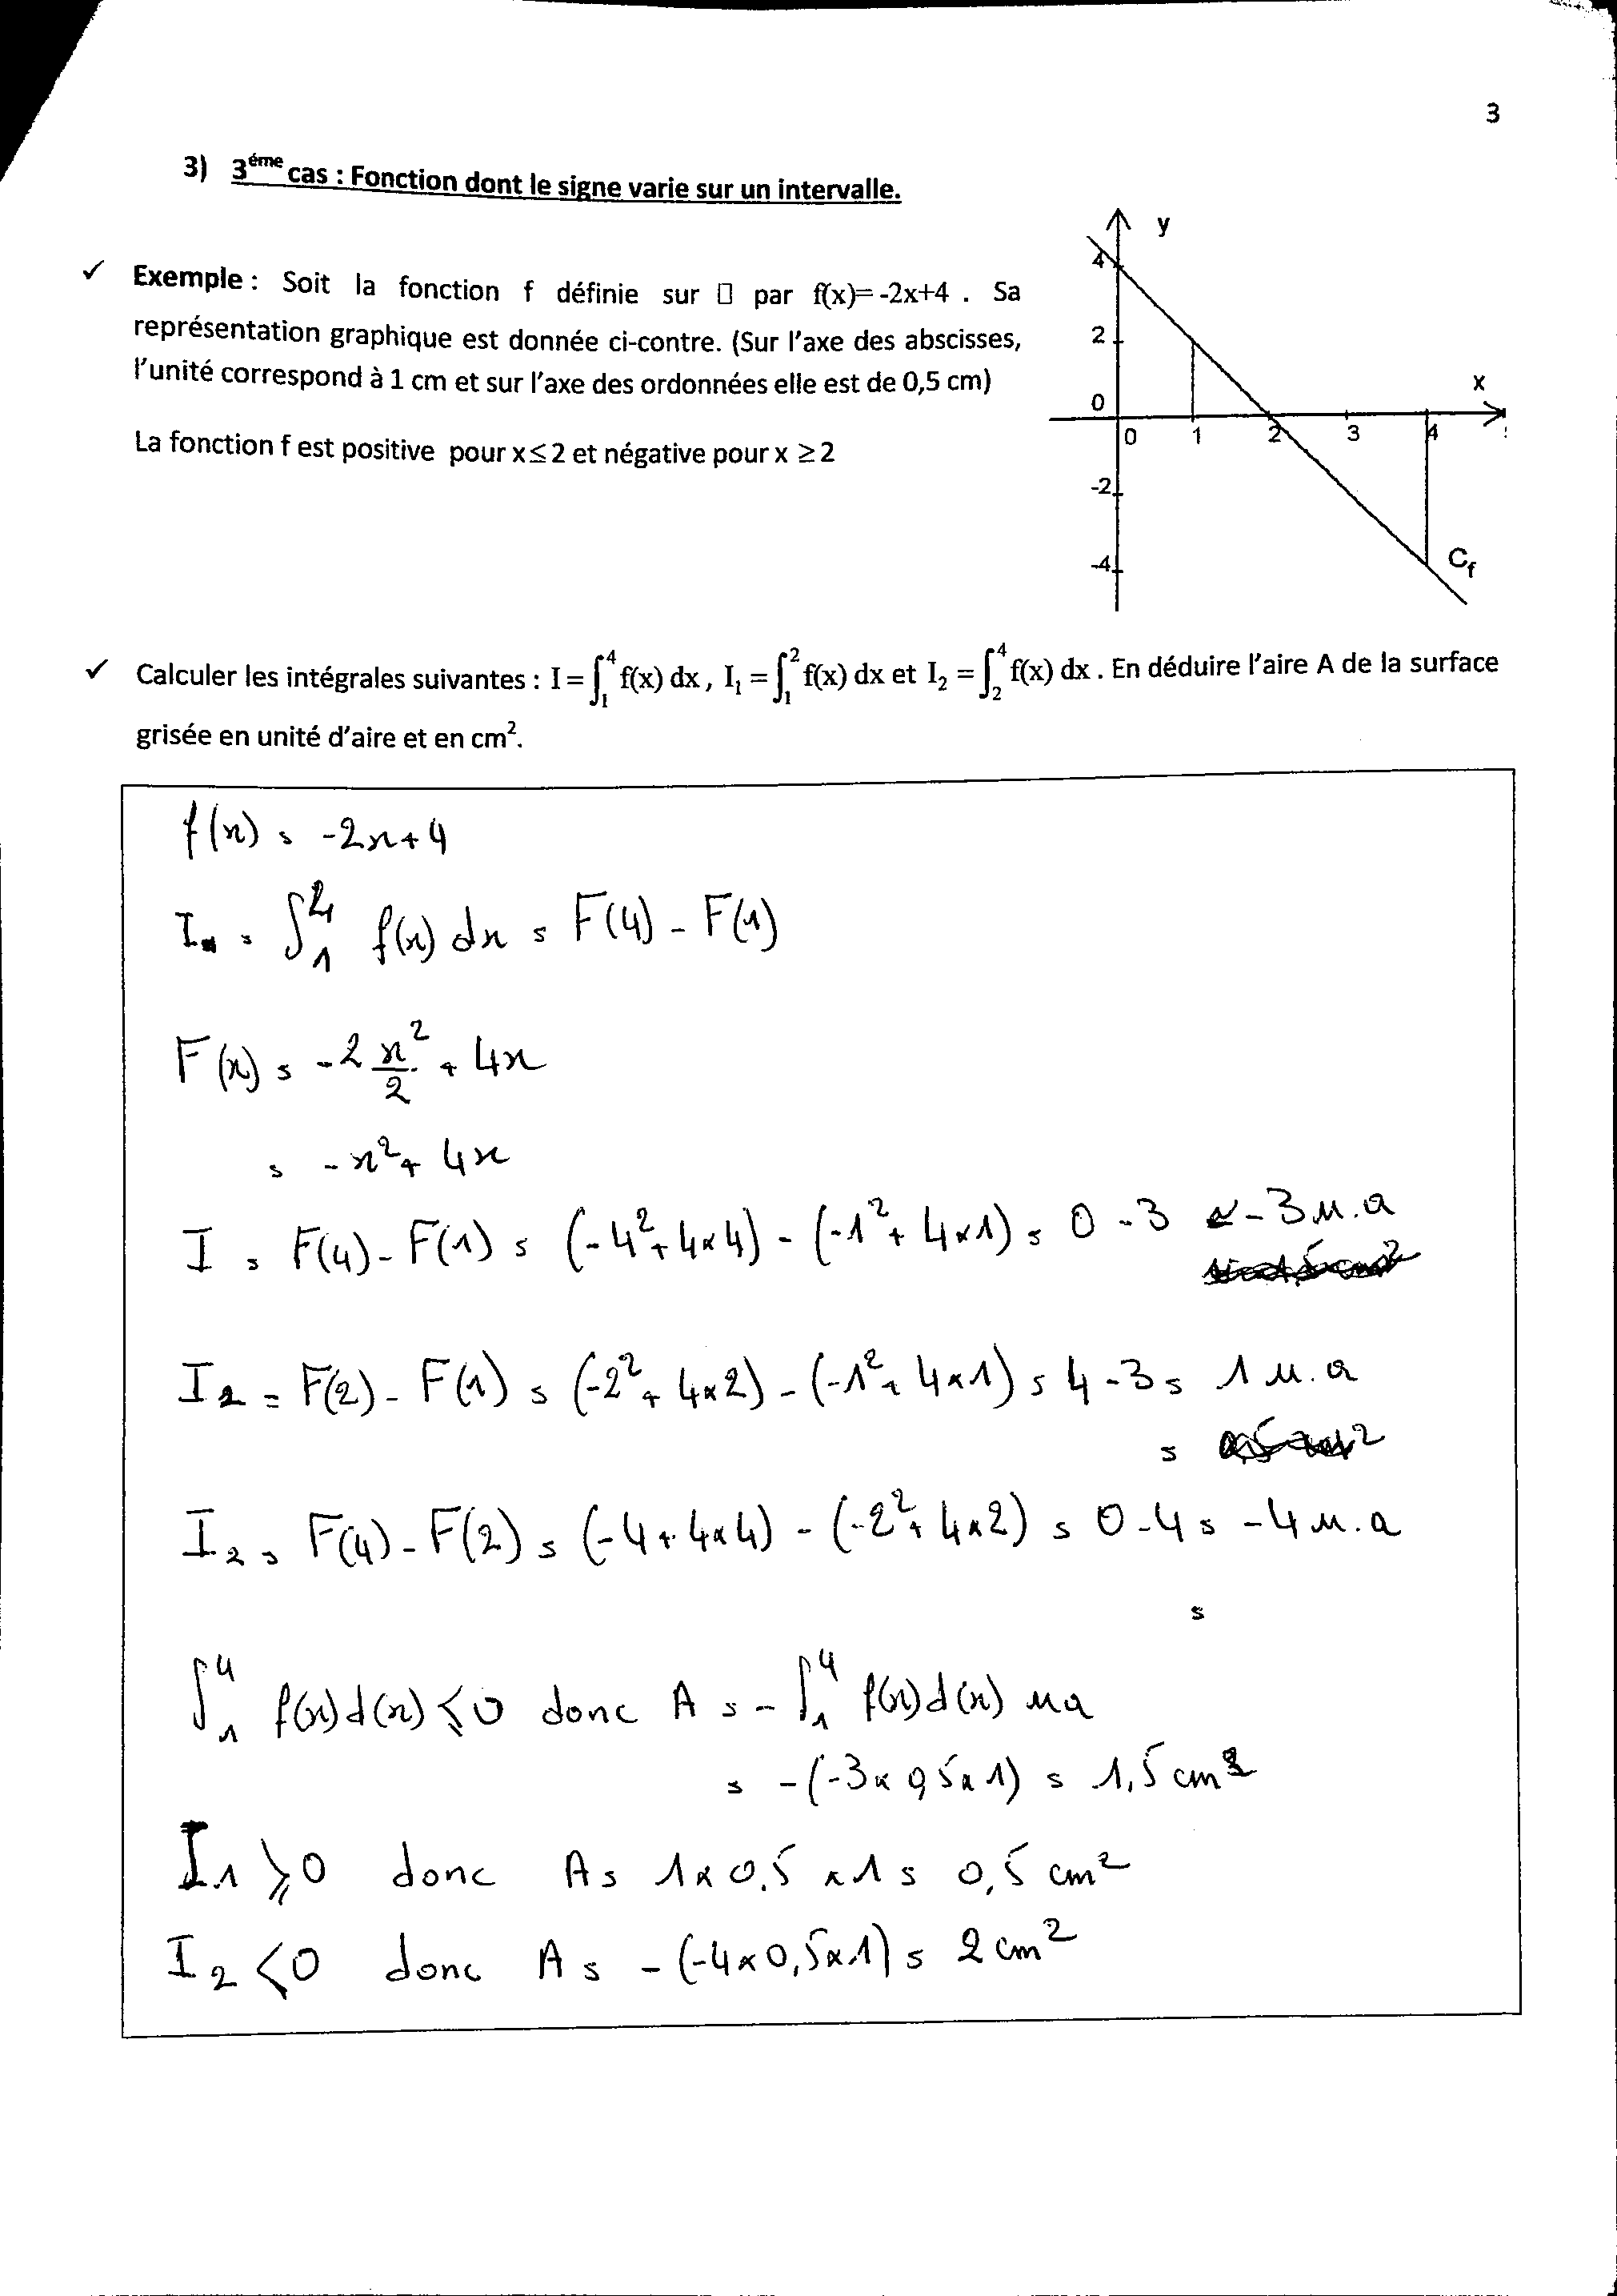 3
3) 3éme cas : Fonction dont le signe varie sur un intervalle.
✓ Exemple : Soit la fonction f définie sur □ par f(x)= -2x+4 . Sa
représentation graphique est donnée ci-contre. (Sur l'axe des abscisses,
l'unité correspond à 1 cm et sur l'axe des ordonnées elle est de 0,5 cm)
La fonction f est positive pour x≤2 et négative pour x ≥2
y
4
2
0
x
0 1 2 3 4
-2
-4
Cf
✓ Calculer les intégrales suivantes : I=∫₁⁴ f(x) dx , I₁ =∫₁² f(x) dx et I₂ =∫₂⁴ f(x) dx . En déduire l'aire A de la surface
grisée en unité d'aire et en cm².
f(x) = -2x+4
I = ∫₁⁴ f(x) dx = F(4) - F(1)
F(x) = -2 x²/2 + 4x
= -x²+ 4x
I = F(4) - F(1) = (-4²+4×4) - (-1²+ 4×1) = 0 -3 = -3 u.a
I₂ = F(2) - F(1) = (-2²+ 4×2) - (-1²+ 4×1) = 4 -3 = 1 u.a
=
I₂ = F(4) - F(2) = (-4+4×4) - (-2²+ 4×2) = 0-4 = -4 u.a
=
∫₁⁴ f(x)d(x) ≤ 0 donc A = -∫₁⁴ f(x)d(x) ua
= -(-3×0,5×1) = 1,5 cm²
I₁ ≥ 0 donc A = 1×0,5 ×1 = 0,5 cm²
I₂ <0 donc A = -(-4×0,5×1) = 2 cm²